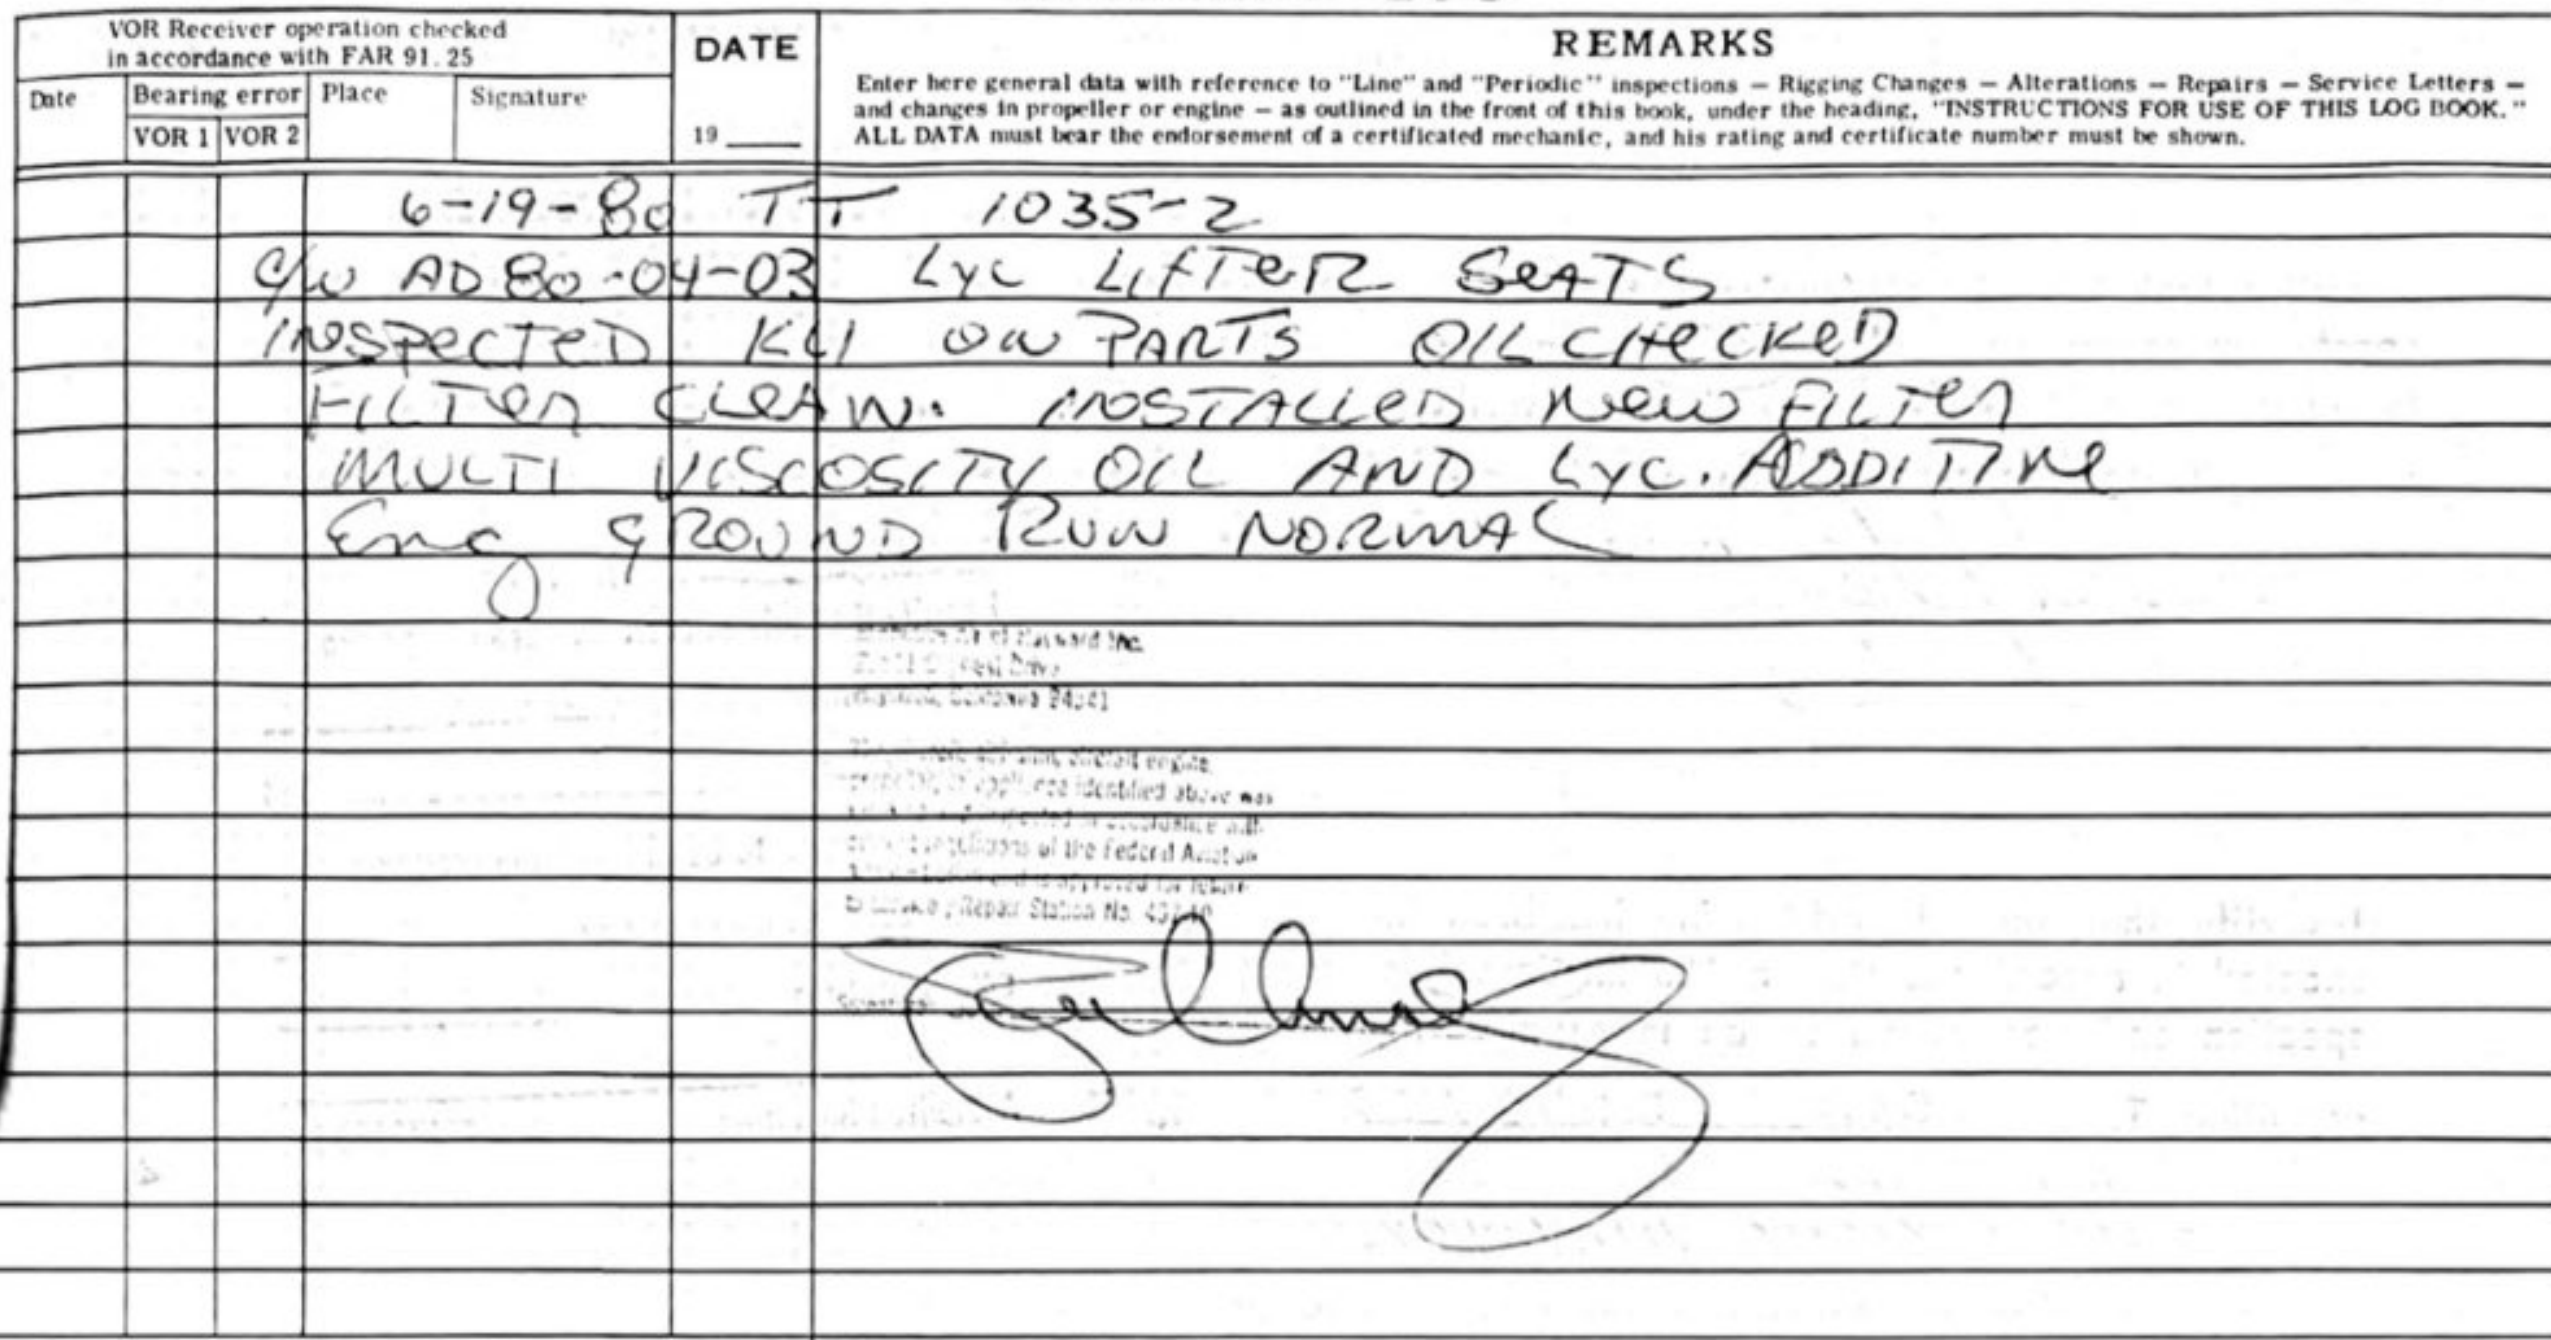 VOR Receiver operation checked
in accordance with FAR 91.25
Date
Bearing error
VOR 1 VOR 2
Place
Signature
DATE
19
REMARKS
Enter here general data with reference to "Line" and "Periodic" inspections — Rigging Changes — Alterations — Repairs — Service Letters —
and changes in propeller or engine — as outlined in the front of this book, under the heading, "INSTRUCTIONS FOR USE OF THIS LOG BOOK."
ALL DATA must bear the endorsement of a certificated mechanic, and his rating and certificate number must be shown.
6-19-80 TT 1035-2
C/W AD 80-04-03 Lyc LIFTER SEATS
INSPECTED PARTS OIL CHECKED
FILTER CLEAN. INSTALLED NEW FILTER
MULTI VISCOSITY OIL AND Lyc. ADDITIVE
Eng GROUND RUN NORMAL
of Hayward Inc.
Drive
California
aircraft engine,
identified above was
in accordance with
regulations of the Federal Aviation
approved for return
Repair Station No.